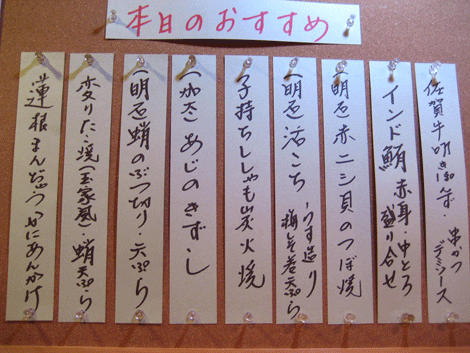 本日のおすすめ
佐賀牛叩きぽん酢・串かつデミソース
インド鮪 赤身・中とろ盛り合せ
(明石)赤ニシ貝のつぼ焼
(明石)活こち うす造り 梅しそ巻天ぷら
子持ちししゃも炭火焼
(加太)あじのきずし
(明石)蛸のぶつ切り・天ぷら
変りたこ焼(玉家風)・蛸天ぷら
蓮根まんじゅうかにあんかけ